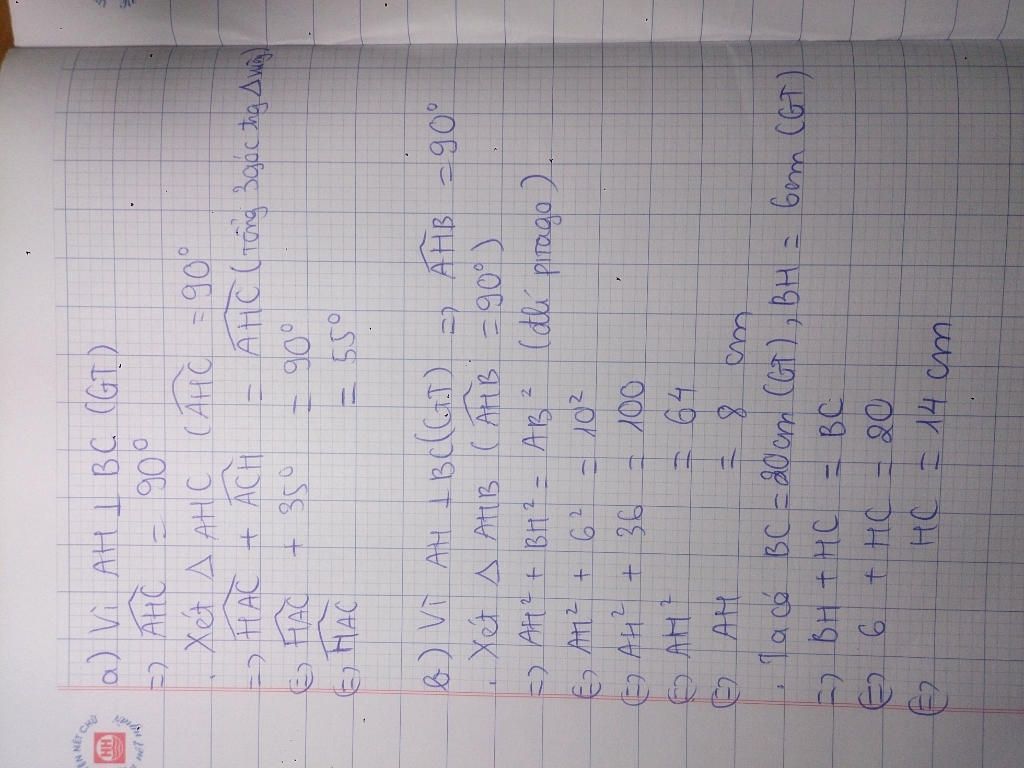 a) Vì AH ⊥ BC (GT)
=> AHC = 90°
. Xét △ AHC (AHC = 90°
=> HAC + ACH = AHC (tổng 3 góc trg △
(=) HAC + 35° = 90°
(=) HAC = 55°
b) Vì AH ⊥ BC (GT) => AHB = 90°
. Xét △ AHB (AHB = 90°)
=> AH² + BH² = AB² (đlí pitago)
(=) AH² + 6² = 10²
(=) AH² + 36 = 100
(=) AH² = 64
(=) AH = 8 cm
. Ta có BC = 20cm (GT), BH = 6cm (GT)
=> BH + HC = BC
(=) 6 + HC = 20
(=) HC = 14 cm
NÉT CHỮ
HH